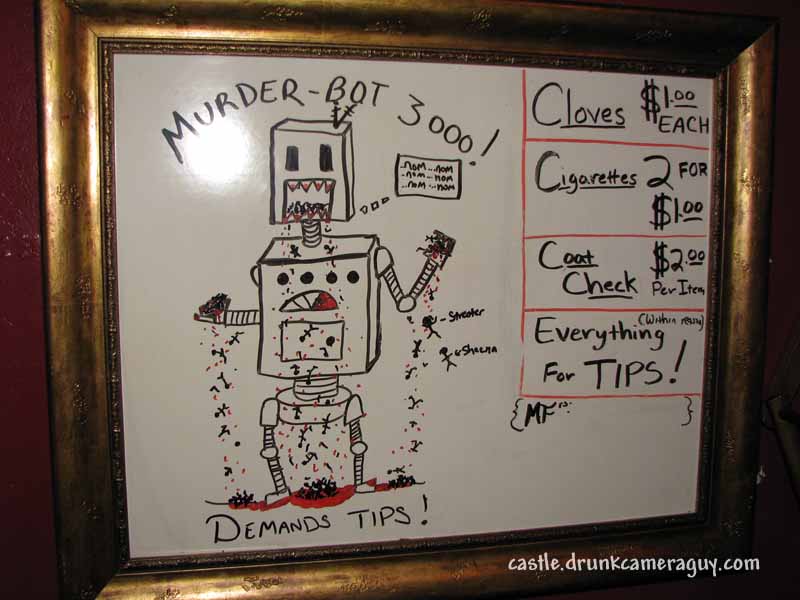 MURDER-BOT 3000!
..NOM...NOM
..NOM...NOM
...NOM...NOM
- Streeter
- Shawna
DEMANDS TIPS!
Cloves $1.00
EACH
Cigarettes 2 FOR
$1.00
Coat $2.00
Check Per Item
(Within reason)
Everything
For TIPS!
{MF }
castle.drunkcameraguy.com